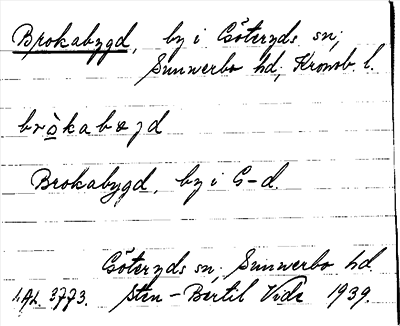 Brokabygd, by i Göteryds sn;
Sunnerbo hd; Kronob. l.
bròkabygd
Brokabygd, by i G-d.
Göteryds sn; Sunnerbo hd.
LAL 3773. Sten-Bertil Vide 1939.